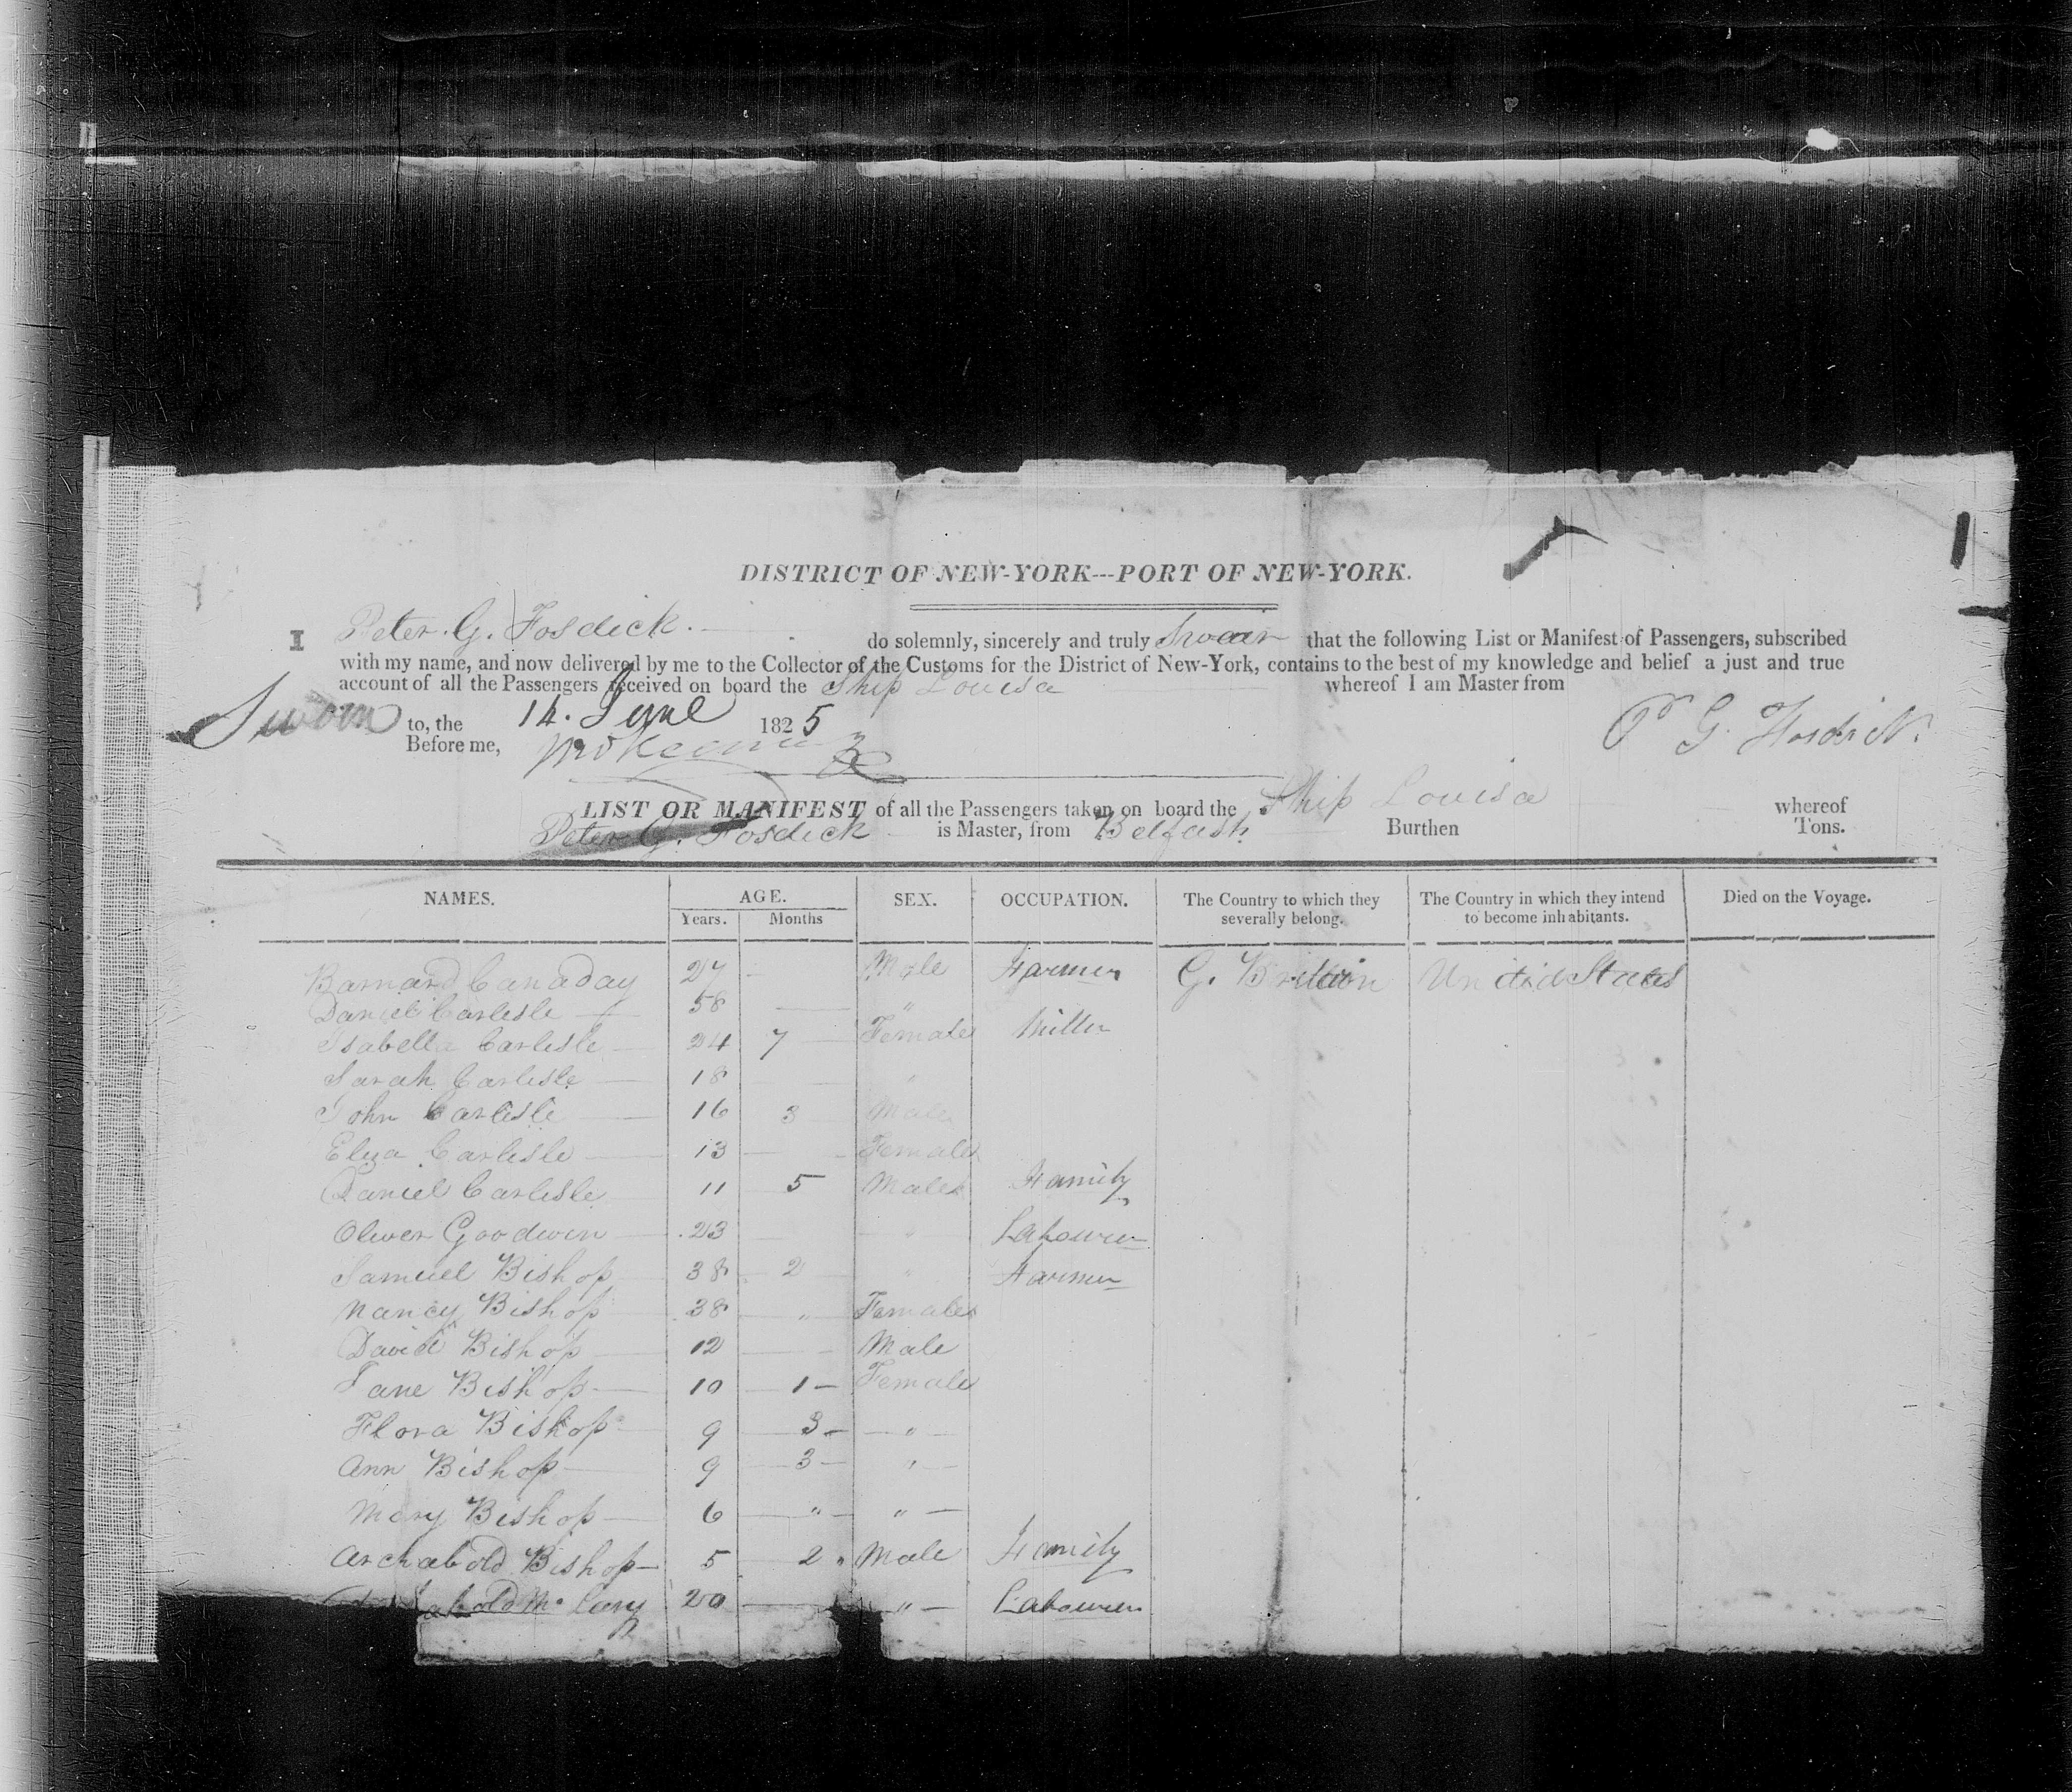 DISTRICT OF NEW-YORK---PORT OF NEW-YORK.
I Peter. G. Fosdick. do solemnly, sincerely and truly Swear that the following List or Manifest of Passengers, subscribed
with my name, and now delivered by me to the Collector of the Customs for the District of New-York, contains to the best of my knowledge and belief a just and true
account of all the Passengers received on board the Ship Louisa whereof I am Master from
Sworn to, the 14. June 1825 P G. Fosdick.
Before me,
LIST OR MANIFEST of all the Passengers taken on board the Ship Louisa whereof
Peter G. Fosdick is Master, from Belfast. Burthen Tons.
NAMES. AGE. SEX. OCCUPATION. The Country to which they severally belong. The Country in which they intend to become inhabitants. Died on the Voyage.
Years. Months
Barnard Canaday 27 — Male Farmer G. Brittain United States
Daniel Carlisle — 58 — "
Isabella Carlisle — 24 7 — Female Miller
Sarah Carlisle — 18 — "
John Carlisle — 16 3 Male
Eliza Carlisle — 13 — Female
Daniel Carlisle 11 5 Male Family
Oliver Goodwin — 23 " Labourer
Samuel Bishop 38 2 " Farmer
Nancy Bishop 38 " Female
David Bishop — 12 — Male
Jane Bishop — 10 1 — Female
Flora Bishop 9 3 — "
Ann Bishop — 9 3 — "
Mary Bishop — 6 " " —
Archabold Bishop — 5 2 " Male Family
20 — " — Labourer